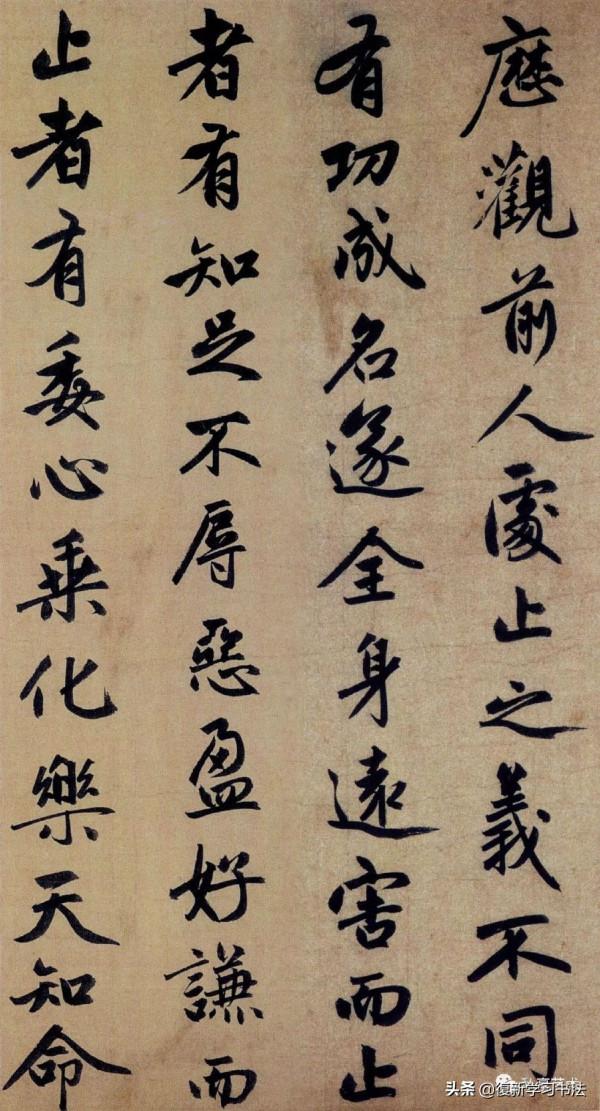 歷觀前人處止之義不同
有功成名遂全身遠害而止
者有知足不辱惡盈好謙而
止者有委心乘化樂天知命
头条 @復新学习书法